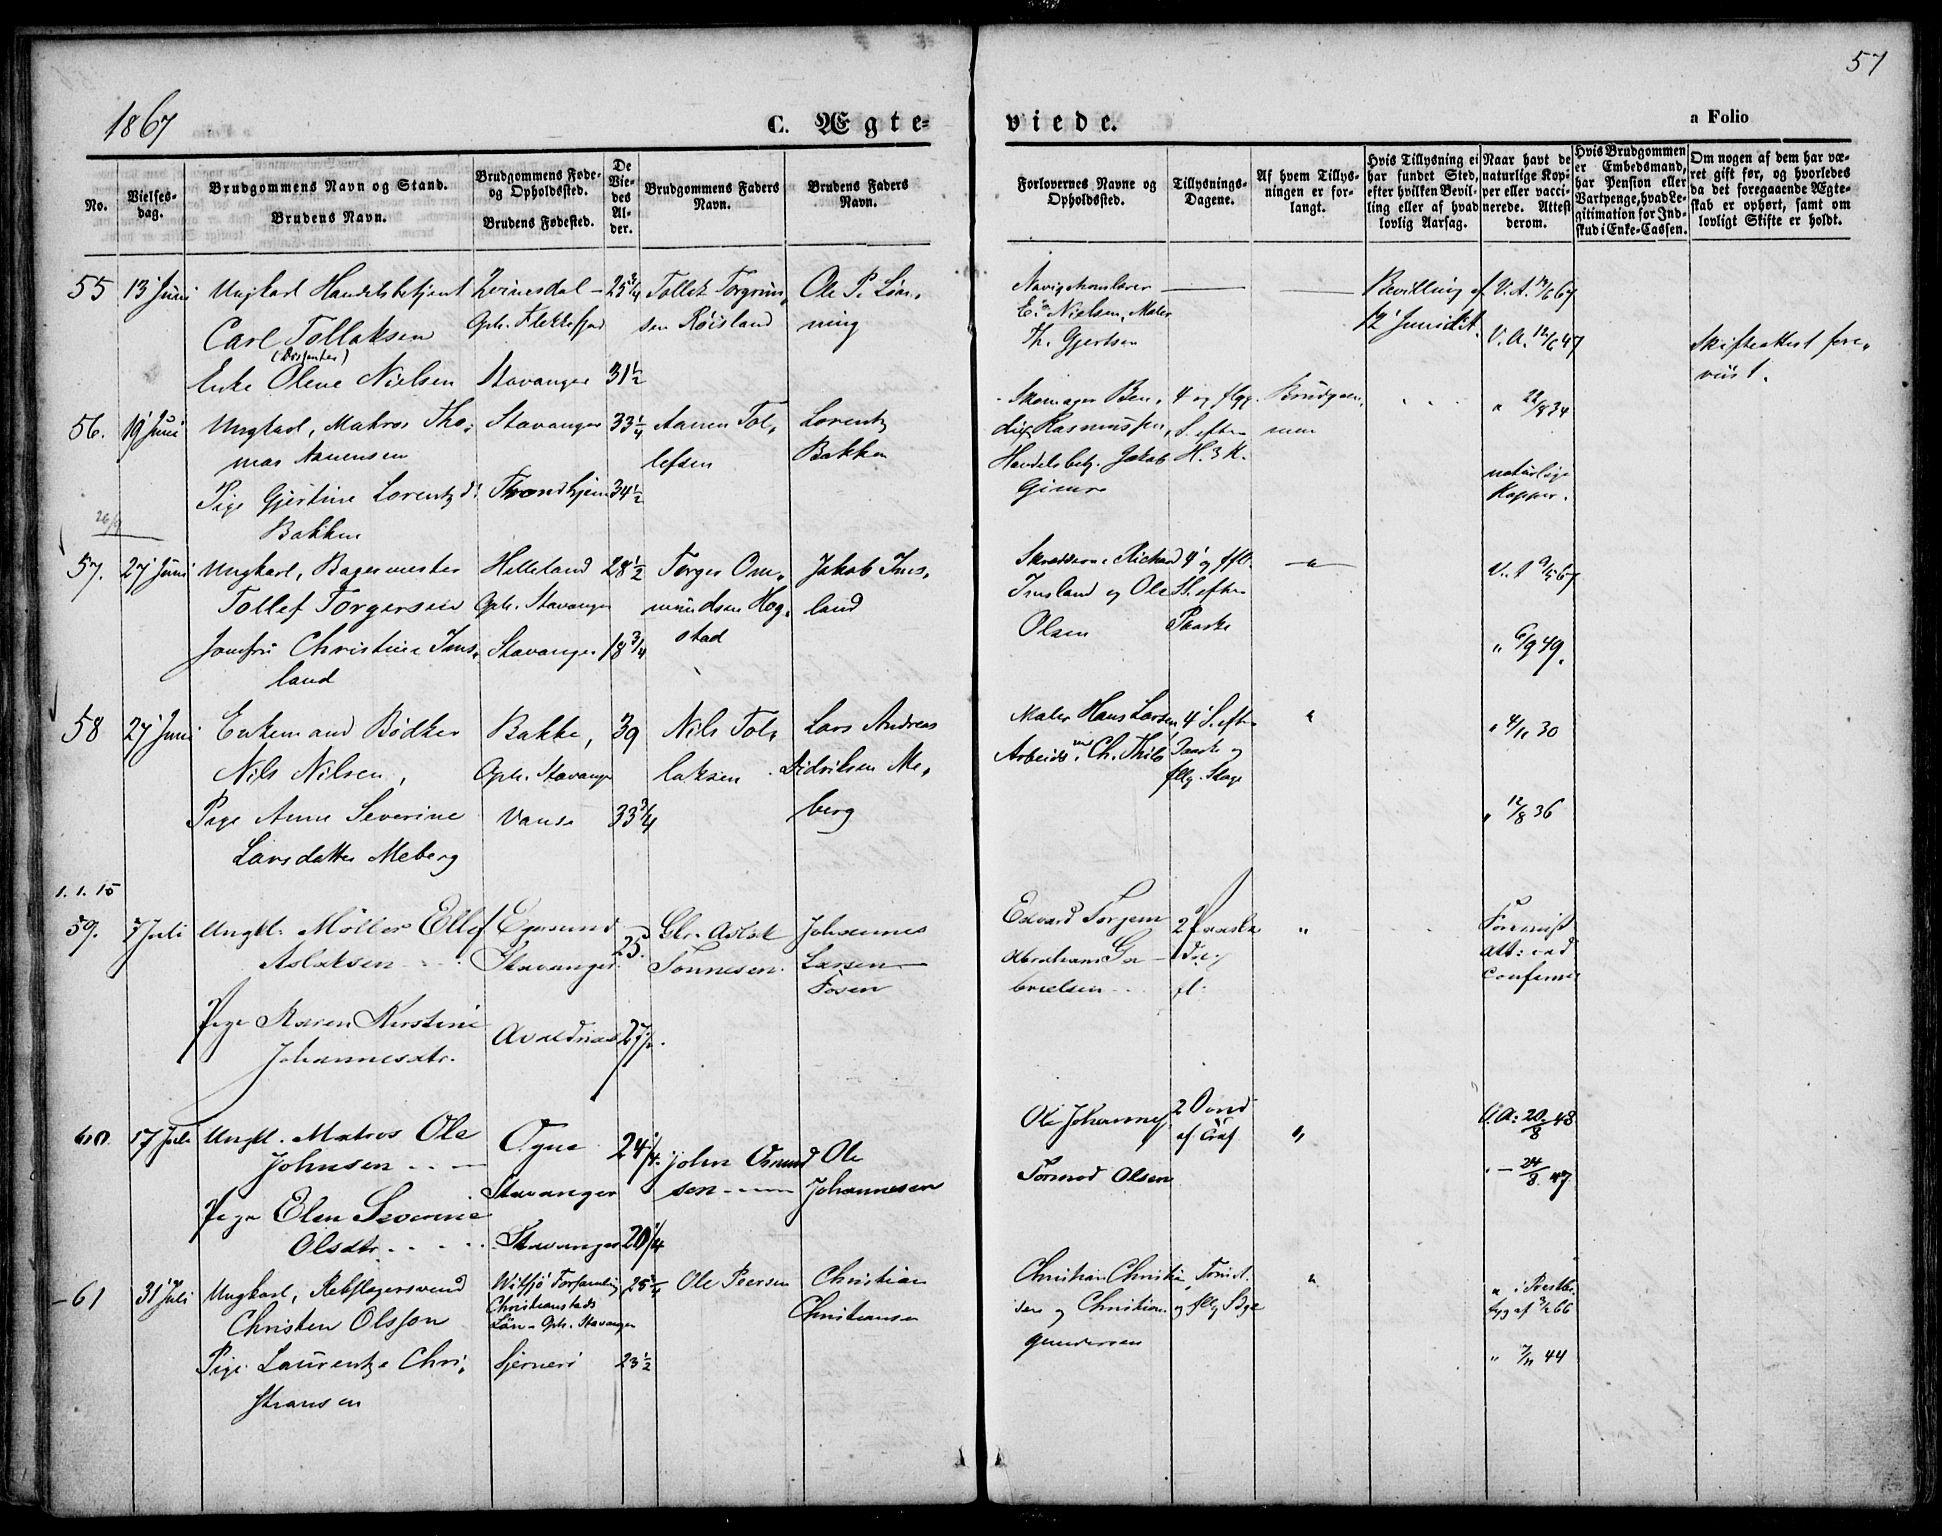 57
1867
C. Ægte-
viede.
a Folio
No.
Vielses-
dag.
Brudgommens Navn og Stand.
Brudens Navn.
Brudgommens Føde-
og Opholdssted.
Brudens Fødested.
De
Vie-
des
Al-
der.
Brudgommens Faders
Navn.
Brudens Faders
Navn.
Forlovernes Navne og
Opholdssted.
Tillysnings-
Dagene.
Af hvem Tillys-
ningen er for-
langt.
Hvis Tillysning ei
har fundet Sted,
efter hvilken Bevil-
ling eller af hvad
lovlig Aarsag.
Naar havt de
naturlige Kop-
per eller vacci-
nerede. Attest
derom.
Hvis Brudgommen
er Embedsmand,
har Pension eller
Vartpenge, hvad Le-
gitimation for Ind-
skud i Enke-Cassen.
Om nogen af dem har væ-
ret gift før, og hvorledes
da det foregaaende Ægte-
skab er ophørt, samt om
lovligt Skifte er holdt.
55 13 Juni Ungkarl Handelsbetjent
Carl Tollaksen
(Dissenter)
Enke Olene Nielsen
Qvinesdal
Oph. Flekkefjord
Stavanger
25 3/4
31 1/2
Tollak Torgrim-
sen Röisland
Ole P. Løn-
ning
E. Nielsen, Maler
Th. Gjertsen
Bevilling af
12 Juni d.A.
V.A. 12/6 67
V.A. 12/6 47
Skifteattest fore-
viist.
56. 19 Juni Ungkarl, Matros Tho-
mas Aanensen
Pige Gjertine Lorentzd.
Bakken
Stavanger
Trondhjem
33 1/4
34 1/2
Aanen Tol-
lefsen
Lorentz
Bakken
Skomager Ben-
dix Rasmussen,
Handelsbetj. Jakob
Gimre
4 og flg.
S. efter
H. 3 K.
Brudgom-
men
" 22/8 34
naturlige
Kopper.
26/9
57. 27 Juni Ungkarl, Bagermester
Tollef Torgersen
Jomfru Christine Ims-
land
Helleland
Oph. Stavanger
Stavanger
28 1/2
18 3/4
Torger Om-
mundsen Hog-
stad
Jakob Ims-
land
Skræddere Richard
Imsland og Ole
Olsen
4 og ffl.
S. efter
Paaske
"
" 6/9 49.
58 27 Juni Enkemand Bödker
Nils Nilsen,
Pige Anne Severine
Larsdatter Meberg
Bakke,
Oph. Stavanger
Vanse
39
33 3/4
Nils Tol-
laksen
Lars Andreas
Didriksen Me-
berg
Maler Hans Larsen
Arbeidsm. Ch. Thils
4 S. efter
Paaske og
flg. Dage
"
" 4/11 30
" 12/8 36
1.1.15
59. 7 Juli Ungkl. Møller Ellef
Aslaksen
Pige Karen Kirstine
Johannesdtr.
Egersund
Stavanger.
Avaldsnes
25.
Aslak
Tønnesen
Johannes
Larsen
Fosen
Edvard Torgersen
Abraham Ga-
brielsen
2 Paaske
"
Forevist
att: ved
Conferme
60. 17 Juli Ungkl. Matros Ole
Johnsen
Pige Elen Severine
Olsdtr.
Ogne
Stavanger
Stavanger
24 1/4
20 1/4
John Osmund
sen
Ole
Johannesen
Ole Johannes
Tormod Olsen
"
V.A: 20/8 43
" 24/8 47
61 31 Juli Ungkarl, Rebslagersvend
Christen Olsson
Pige Laurentze Chri-
stiansen
Witsjö Forsamling
Christianstads
Län - Oph. Stavanger
Sjernerö
25 3/4
23 1/2
Ole Peersen
Christian
Christiansen
Christian Christian-
sen og Christian
Gundersen
Trinit.
og flg. Dge
"
" i Prestbe-
tyg af 3/2 66
" 7/11 44